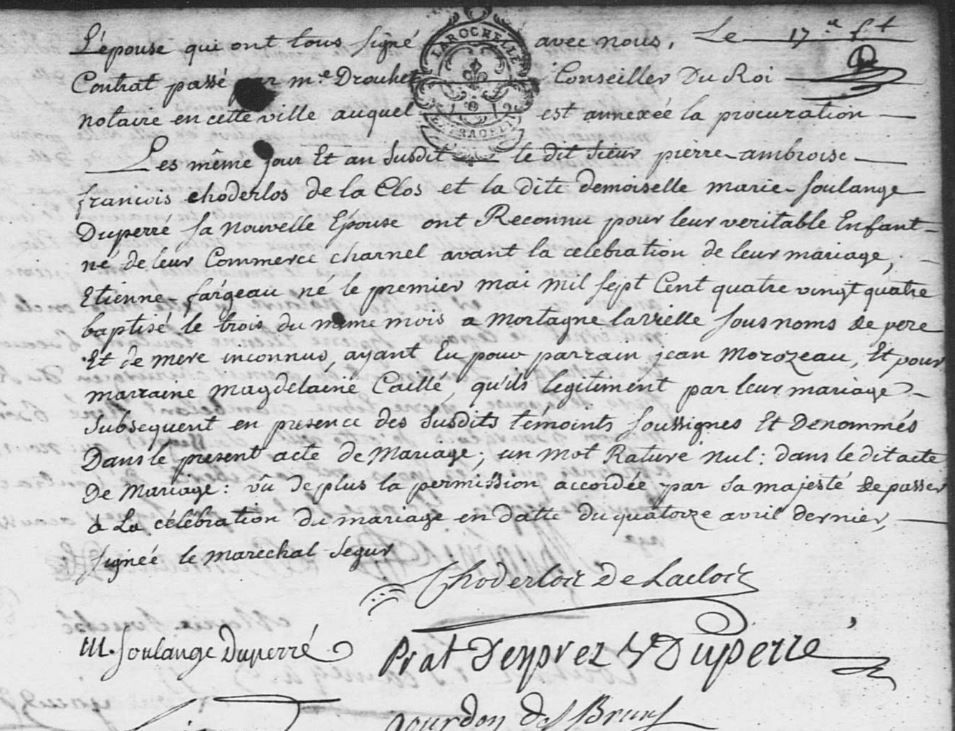 L'épouse qui ont tous signé avec nous, Le 17
Contrat passé par me Drouhet Conseiller Du Roi
notaire en cette ville auquel est annexée la procuration
LAROCHELLE
Les même jour Et an susdit le dit sieur pierre-ambroise
francois choderlos de la Clos et la dite demoiselle marie-soulange
Duperré sa nouvelle Epouse ont Reconnu pour leur veritable Enfant
né de leur Commerce charnel avant la celebration de leur mariage,
Etienne-fargeau né le premier mai mil sept Cent quatre vingt quatre
baptisé le trois du même mois a mortagne lavielle sous noms de pere
Et de mere inconnus, ayant Eu pour parrain jean morozeau, Et pour
marraine magdelaine Caillé, qu'ils legitiment par leur mariage
subsequent en presence des susdits témoints soussignes Et denommés
Dans le present acte de Mariage; un mot Raturé nul: dans le dit acte
De Mariage: vû de plus la permission accordée par sa majesté de passer
à La célébration du mariage en datte du quatorze avril dernier,
signée le marechal segur
Choderlos de Laclos
M. soulange Duperré Prat Desprez Ve Duperré
gourdon des Bruns